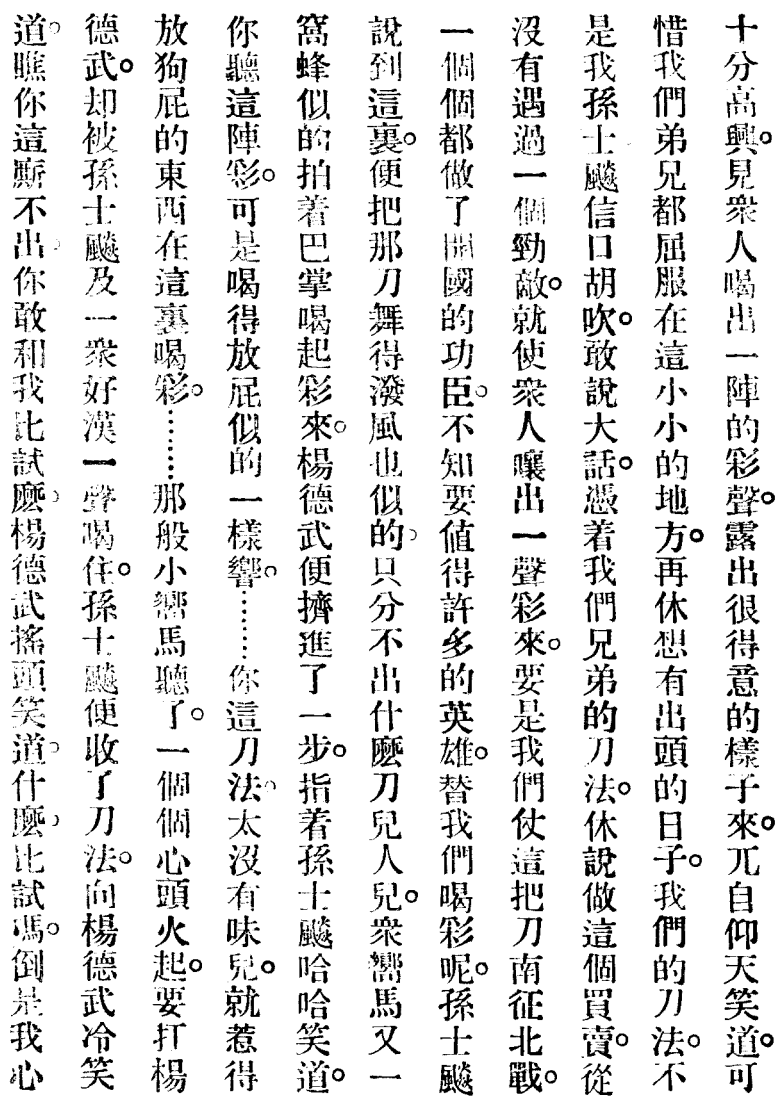 十分高興。見衆人喝出一陣的彩聲。露出很得意的樣子來。兀自仰天笑道。可
惜我們弟兄都屈服在這小小的地方。再休想有出頭的日子。我們的刀法。不
是我孫士飈信口胡吹。敢說大話。憑着我們兄弟的刀法。休說做這個買賣。從
沒有遇過一個勁敵。就使衆人嚷出一聲彩來。要是我們仗這把刀南征北戰。
一個個都做了開國的功臣。不知要值得許多的英雄。替我們喝彩呢。孫士飈
說到這裏。便把那刀舞得潑風也似的。只分不出什麼刀兒人兒。衆嚮馬又一
窩蜂似的拍着巴掌喝起彩來。楊德武便擠進了一步。指着孫士飈哈哈笑道。
你聽這陣彩。可是喝得放屁似的一樣響。……你這刀法。太沒有味兒。就惹得
放狗屁的東西在這裏喝彩。……那般小嚮馬聽了。一個個心頭火起。要打楊
德武。却被孫士飈及一衆好漢一聲喝住。孫士飈便收了刀法。向楊德武冷笑
道。瞧你這厮不出。你敢和我比試麼。楊德武搖頭笑道。什麼。比試嗎。倒是我心